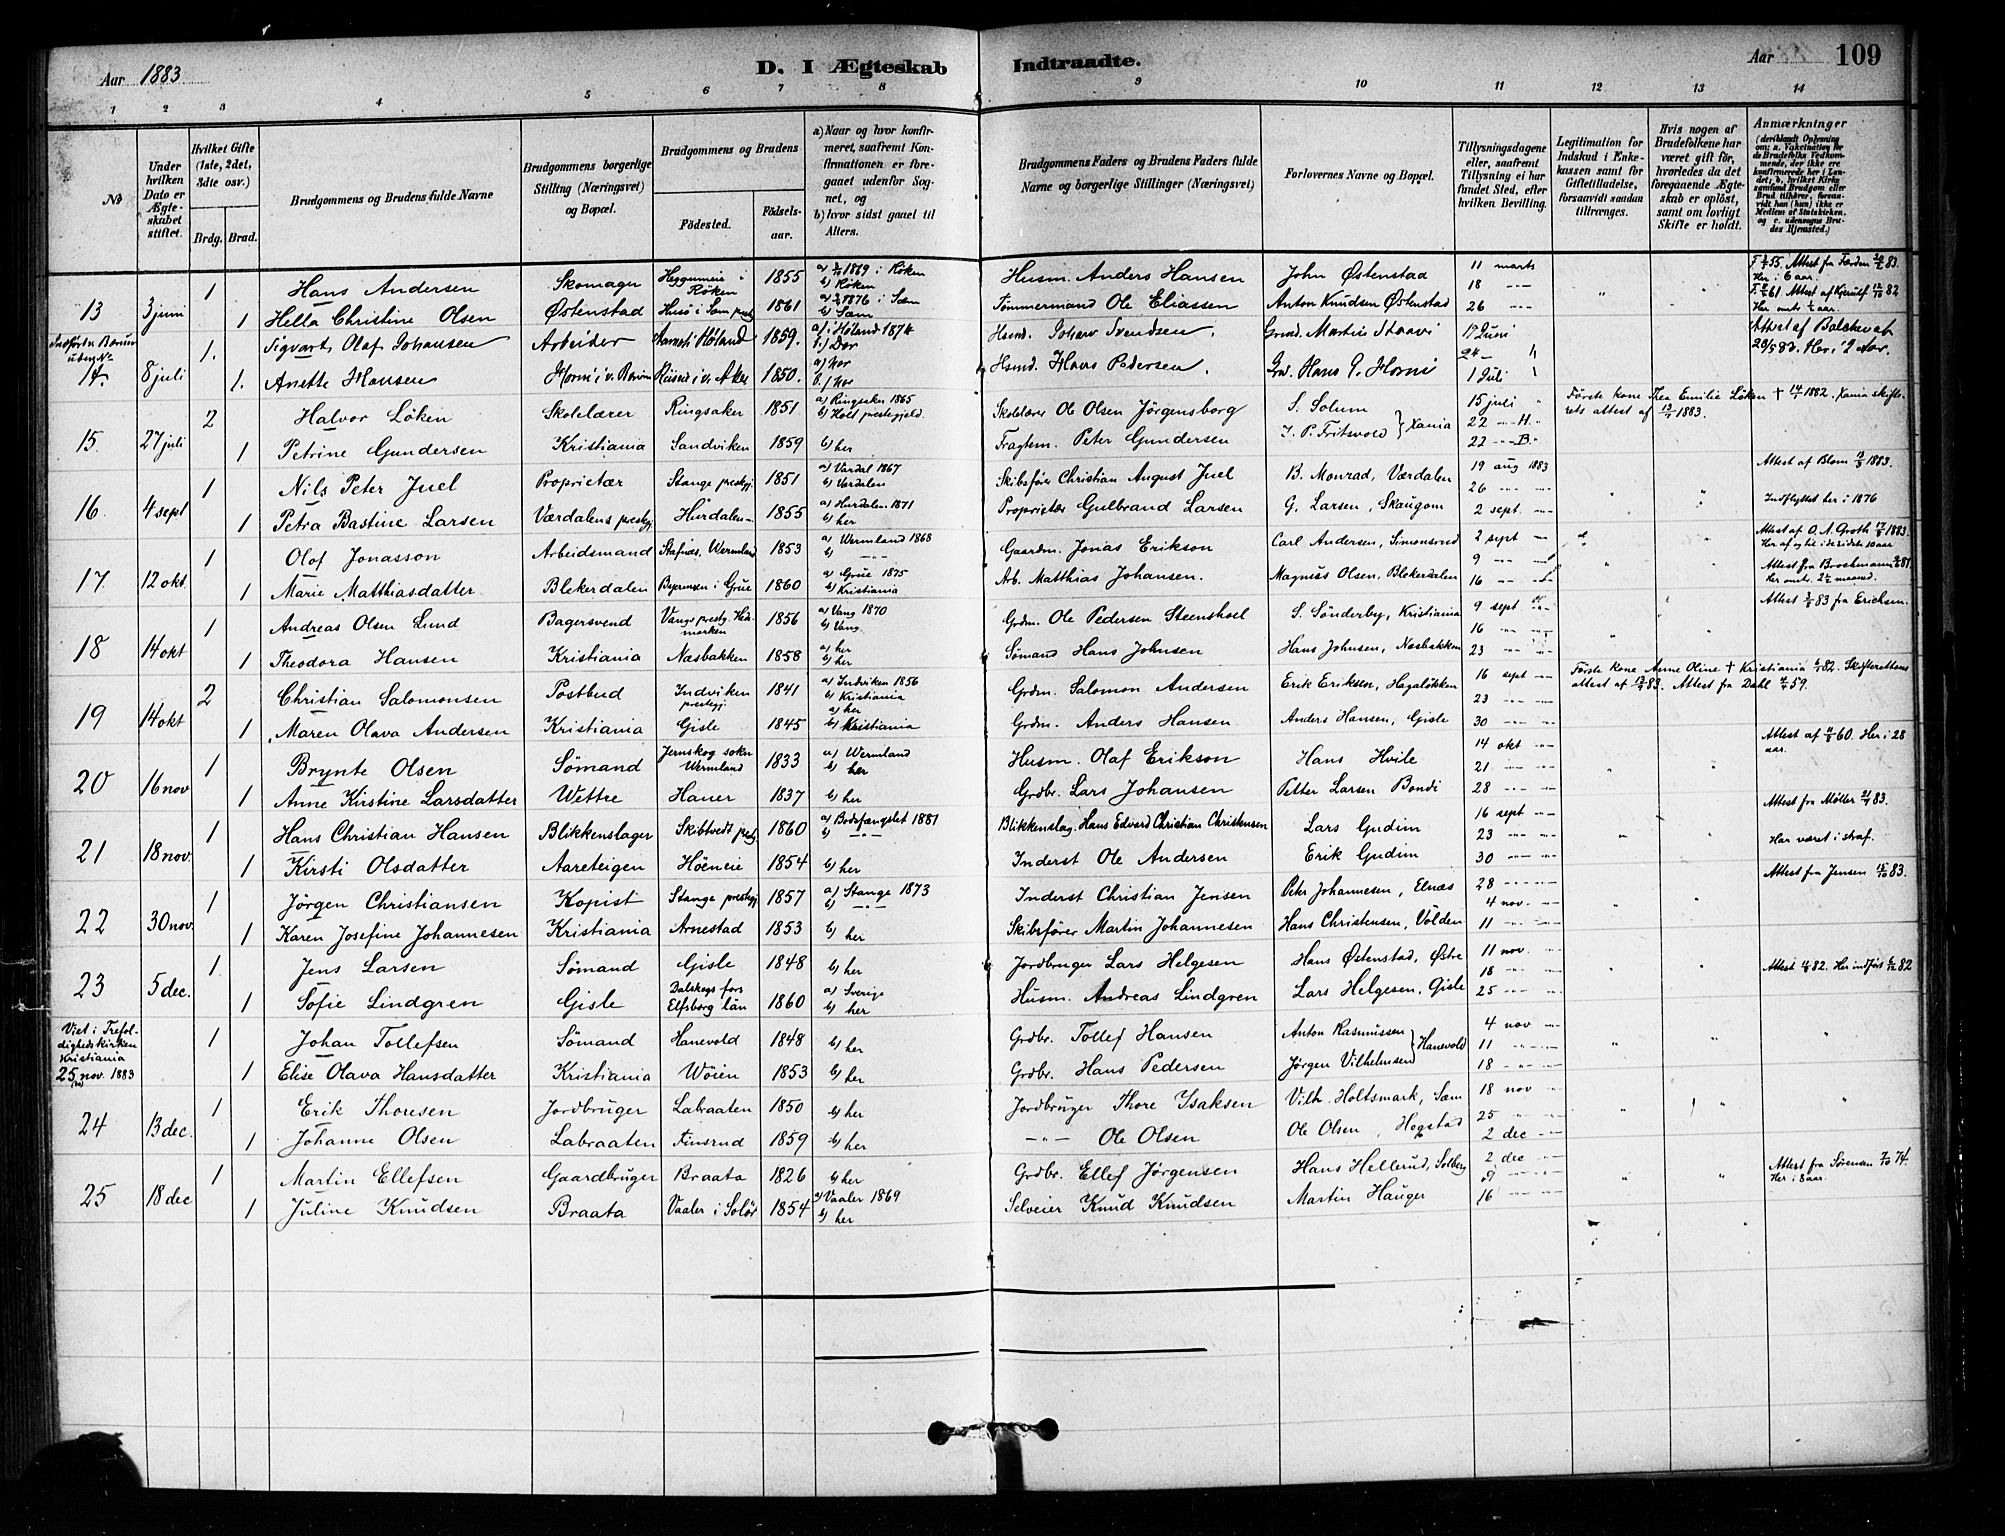 Aar 1883.
D. I Ægteskab Indtraadte.
Aar
109
1 2 3 4 5 6 7 8 9 10 11 12 13 14
No
Under hvilken Dato er Ægteskabet stiftet.
Hvilket Gifte (1ste, 2det, 3dte osv.)
Brdg. Brud.
Brudgommens og Brudens fulde Navne
Brudgommens borgerlige Stilling (Næringsvei) og Bopæl.
Brudgommens og Brudens
Fødested. Fødselsaar.
a) Naar og hvor konfirmeret, saafremt Konfirmationen er foregaaet udenfor Sognet, og
b) hvor sidst gaaet til Alters.
Brudgommens Faders og Brudens Faders fulde Navne og borgerlige Stillinger (Næringsvei)
Forlovernes Navne og Bopæl.
Tillysningsdagene eller, saafremt Tillysning ei har fundet Sted, efter hvilken Bevilling.
Legitimation for Indskud i Enkekassen samt for Giftetilladelse, forsaavidt saadan tiltrænges.
Hvis nogen af Brudefolkene har været gift før, hvorledes da det foregaaende Ægteskab er opløst, samt om lovligt Skifte er holdt.
Anmærkninger
(deriblandt Oplysning om: a. Vakcination for de Brudefolks Vedkommende, der ikke ere konfirmerede her i Landet; b. hvilket Kirkesamfund Brudgom eller Brud tilhører, forsaavidt han (hun) ikke er Medlem af Statskirken, og c. udensogns Brudes Hjemsted.)
13 3 juni 1 Hans Andersen Skomager Heggumeie i Røken 1855 1869 i Røken b) Røken Husm. Anders Hansen John Østenstad 11 marts Her i 6 aar.
1 Hella Christine Olsen Østenstad 1861 1876 i Sæm b) Sæm Tømmermand Ole Eliassen Anton Knudsen Østenstad 18 26
14. 8 juli 1. Sigvart Olaf Johansen Arbeider Høland 1859. a) i Høland 1874 b) Do Husmd. Johan Svendsen. Grmd. Martin 17 Juni Her i 2 Aar.
1. Anette Hansen 1850. Hsmd. Hans Pedersen. Hans P. Horni 24 1 Juli
15 27 juli 2 Halvor Løken Skolelærer Ringsaker 1851 a) Ringsaker 1865 b) Hoel prestegjeld. Skolelærer Ole Olsen Jørgensborg S. Solum 15 juli Første kone Thea Emilie Løken † 1882. Xania skifterets attest af 1883.
1 Petrine Gundersen Kristiania Sandviken 1859 b) her Fragtem. Peter Gundersen J. P. Fritsvold } Xania 22 H. 22 B.
16 4 sept 1 Nils Peter Juel Proprietær Stange prestegj. 1851 a) Vardal 1867 b) Værdalen Skibsfører Christian August Juel B. Monrad, Værdalen 19 aug 1883 Attest af Blom 1883.
1 Petra Bastine Larsen Værdalens prestegj. Hurdalen 1855 a) Hurdalen 1871 b) her Proprietær Gulbrand Larsen G. Larsen, Skaugum 26 2 sept Indflyttet her i 1876
17 12 okt 1 Olof Jonasson Arbeidsmand Stafnæs, Wermland 1853 a) Wermland 1868 b) Gaardm. Jonas Erikson Carl Andersen, Simonsrud 2 sept Attest af O. A. Groth 1883. Her af og til i de sidste 10 aar
1 Marie Matthiasdatter Blekerdalen i Grue 1860 a) Grue 1875 b) Kristiania Arb. Matthias Johansen. Magnus Olsen, Blekerdalen 9 16 Attest fra Brochmann 81.
18 14 okt 1 Andreas Olsen Lund Bagersvend Vangs prestg. Hedmarken 1856 a) Vang 1870 b) Vang Grdm. Ole Pedersen Steenshoel S. Sönderby, Kristiania 9 sept Attest 83 fra Erichsen.
1 Theodora Hansen Kristiania Næsbakken 1858 a) her b) her Sømand Hans Johnsen Hans Johnsen, Næsbakken 16 23
19 14 okt 2 Christian Salomonsen Postbud Indviken prestegj. 1841 a) Indviken 1856 b) Kristiania Grdm. Salomon Andersen Erik Eriksen, Hagaløkken 16 sept Første kone Anne Oline † Kristiania 82. Skifterettens attest af 83. Attest fra Dahl 59.
1 Maren Olava Andersen Kristiania Gisle 1845 a) her b) Kristiania Grdm. Anders Hansen Anders Hansen, Gisle 23 30
20 16 nov 1 Brynte Olsen Sömand Jernskog sokn Wermland 1833 a) Wermland b) her Husm. Olaf Erikson Hans Hvile 14 okt Attest af 60. Her i 28 aar.
1 Anne Kirstine Larsdatter Wettre Haner 1837 b) her Grdbr. Lars Johansen Petter Larsen Bondi 21 28
21 18 nov. 1 Hans Christian Hansen Blikkenslager Skibtvedt prestg. 1860 a) Bodsfængslet 1881 b) Blikkenslag. Hans Edvard Christian Christensen Lars Gudim 16 sept Attest fra Møller 83.
1 Kirsti Olsdatter Aareteigen Höeneie 1854 b) her Inderst Ole Andersen Erik Gudim 23 30 Har været i straf.
22 30 nov. 1 Jörgen Christiansen Kopist Stange prestegj 1857 a) Stange 1873 b) Inderst Christian Jensen Peter Johannesen, Elnæs 28 Attest fra Jensen 83.
1 Karen Josefine Johannesen Kristiania Arnestad 1853 b) her Skibsfører Martin Johannesen Hans Christensen, Volden 4 nov. 11
23 5 dec. 1 Jens Larsen Sömand Gisle 1848 b) her Jordbruger Lars Helgesen Hans Østenstad, Østre 11 nov. Attest 82. Her indført 82
1 Sofie Lindgren Gisle Dalskogs fors Elfsborg län 1860 a) Sverige b) her Husm. Andreas Lindgren Lars Helgesen, Gisle 18 25
Viet i Trefoldighedskirken Kristiania 25 nov. 1883 1 Johan Tollefsen Sömand Hanevold 1848 b) her Grdbr. Tollef Hansen Anton Rasmussen 4 nov
1 Elise Olava Hansdatter Kristiania Wöien 1853 b) her Grdbr. Hans Pedersen Jörgen Vilhelmsen } Hanevold 11 18
24 13 dec. 1 Erik Thoresen Jordbruger Labraaten 1850 b) her Jordbruger Thore Ysaksen Vilh. Holtsmark, Sæm 18 nov
1 Johanne Olsen Labraaten Finsrud 1859 b) her Ole Olsen Ole Olsen, Hogstad 25 2 dec
25 18 dec 1 Martin Ellefsen Gaardbruger Braata 1826 b) her Grdbr. Ellef Jørgensen Hans Hellerud, Solberg 2 dec Attest fra Sørensen 74. Her i 8 aar.
1 Juline Knudsen Braata Vaaler i Solör 1854 a) Vaaler 1869 b) her Selveier Knud Knudsen Martin Hauger 9 16